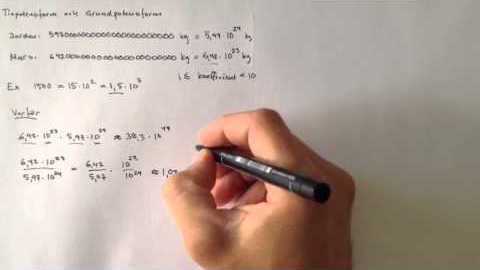 Tiopotensform och Grundpotensform
Jorden: 5970000000000000000000000 kg = 5,97·10²⁴ kg
Mars: 642000000000000000000000 kg = 6,42·10²³ kg
1 ≤ koefficient < 10
Ex 1500 = 15·10² = 1,5·10³
Varför
6,42·10²³ · 5,97·10²⁴ ≈ 38,3·10⁴⁷
6,42·10²³ / 5,97·10²⁴ = 6,42 / 5,97 · 10²³ / 10²⁴ ≈ 1,07